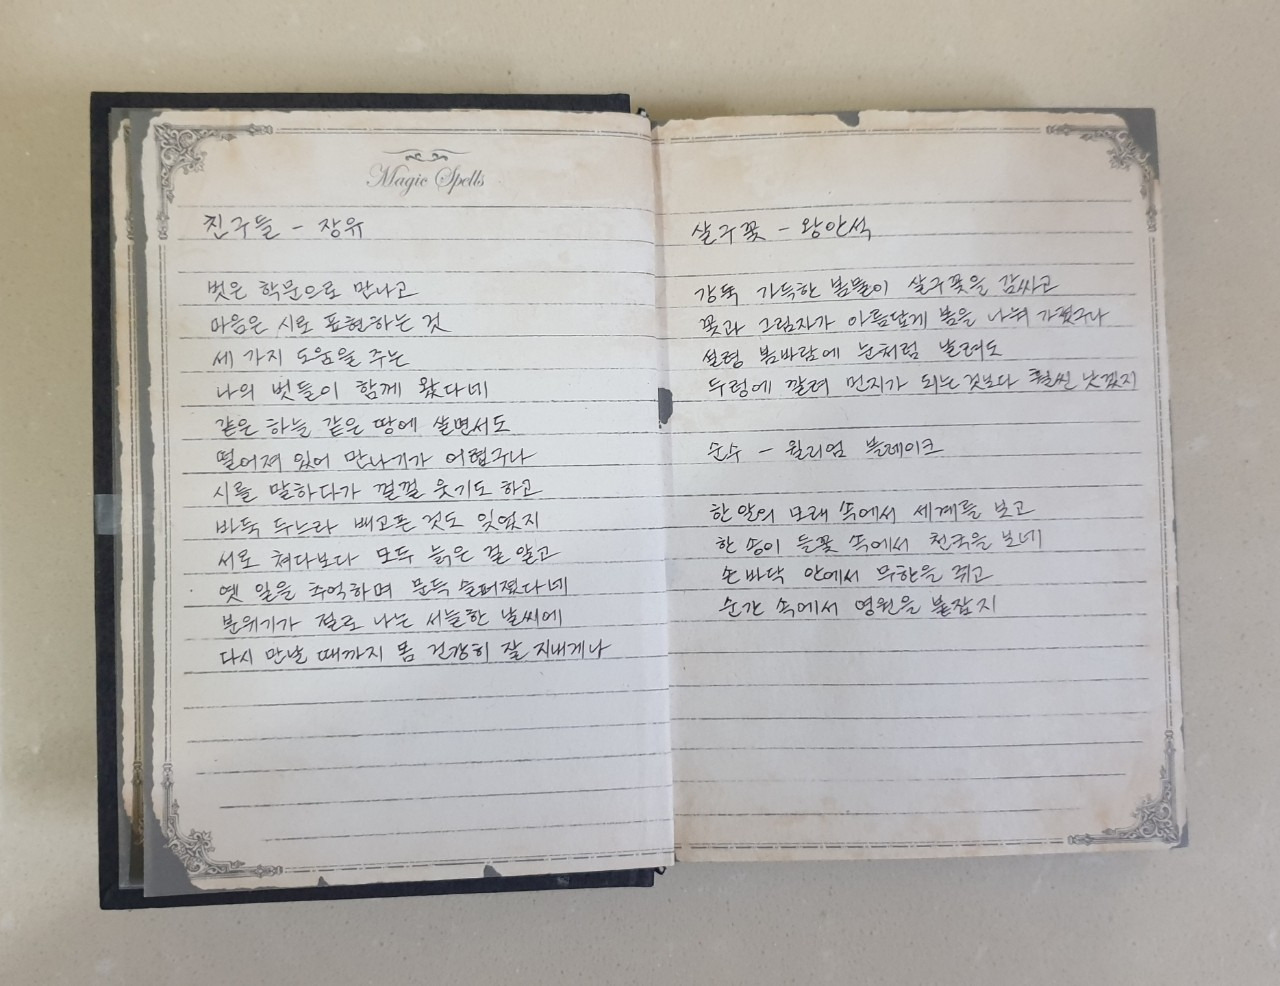 Magic Spells
친구들 - 장유
벗은 학문으로 만나고
마음은 시로 표현하는 것
세 가지 도움을 주는
나의 벗들이 함께 왔다네
같은 하늘 같은 땅에 살면서도
떨어져 있어 만나기가 어렵구나
시를 말하다가 껄껄 웃기도 하고
바둑 두느라 배고픈 것도 잊었지
서로 쳐다보다 모두 늙은 걸 알고
옛 일을 추억하며 문득 슬퍼졌다네
분위기가 절로 나는 서늘한 날씨에
다시 만날 때까지 몸 건강히 잘 지내게나
살구꽃 - 왕안석
강둑 가득한 봄물이 살구꽃을 감싸고
꽃과 그림자가 아름답게 봄을 나눠 가졌구나
설령 봄바람에 눈처럼 날려도
두렁에 깔려 먼지가 되는 것보다 훨씬 낫겠지
순수 - 윌리엄 블레이크
한 알의 모래 속에서 세계를 보고
한 송이 들꽃 속에서 천국을 보네
손바닥 안에서 무한을 쥐고
순간 속에서 영원을 붙잡지